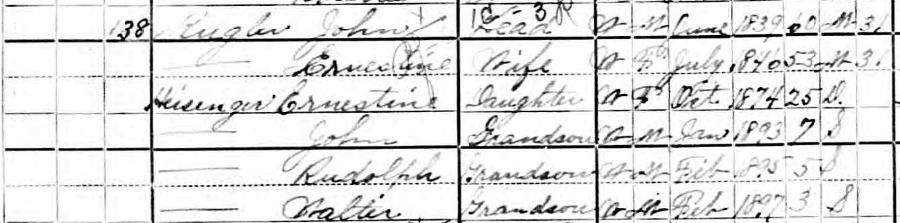 138 Kugler John Head W M June 1839 60 M 31
— Ernestine Wife W F July 1846 53 M 31
Heisenger Ernestine Daughter W F Oct 1874 25 D.
— John Grandson W M Jan 1893 7 S
— Rudolph Grandson W M Feb 1895 5 S
— Walter Grandson W M Feb 1897 3 S